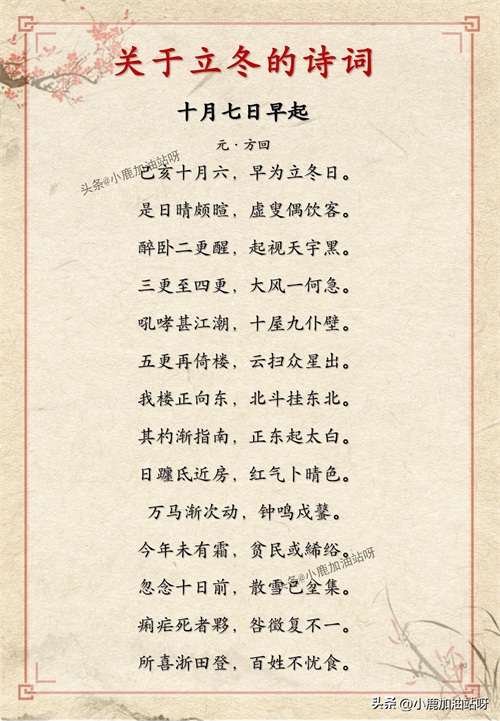 关于立冬的诗词
十月七日早起
元·方回
头条@小鹿加油站呀
己亥十月六，早为立冬日。
是日晴颇暄，虚叟偶饮客。
醉卧二更醒，起视天宇黑。
三更至四更，大风一何急。
吼哮甚江潮，十屋九仆壁。
五更再倚楼，云扫众星出。
我楼正向东，北斗挂东北。
其杓渐指南，正东起太白。
日躔氐近房，红气卜晴色。
万马渐次动，钟鸣戍鼜。
今年未有霜，贫民或絺绤。
头条@小鹿加油站呀
忽念十日前，散雪已坌集。
痢疟死者夥，咎徵复不一。
所喜浙田登，百姓不忧食。
头条 @小鹿加油站呀